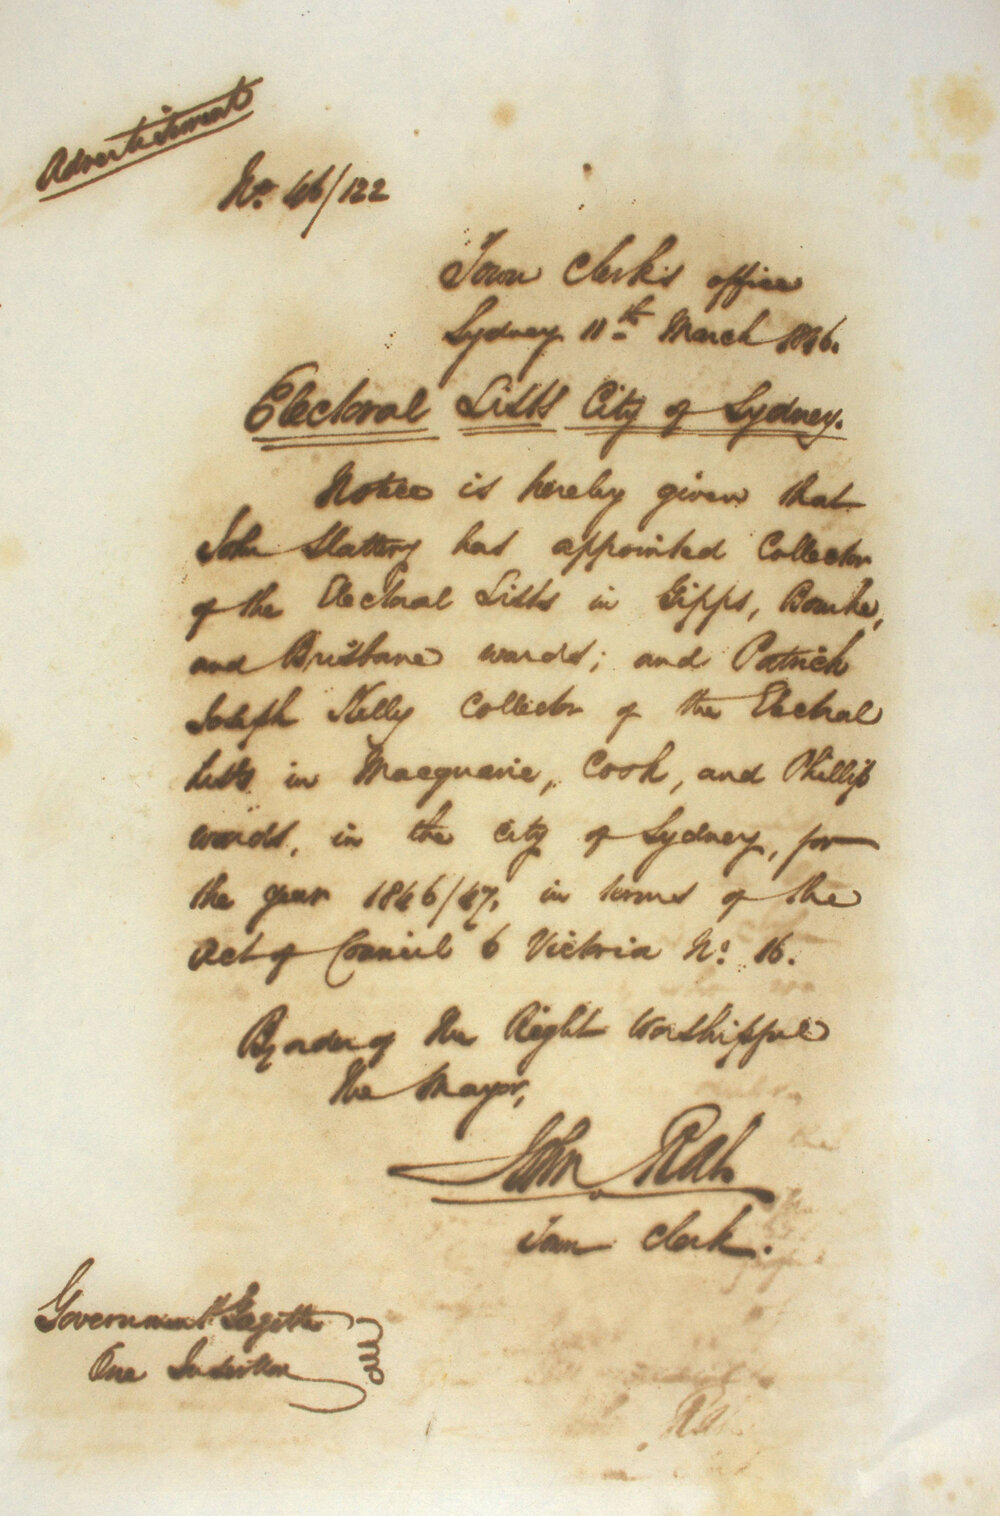 Advertisement
No. 46/122
Town Clerk's office
Sydney 11th March 1846.
Electoral Lists City of Sydney.
Notice is hereby given that
John Slattery has appointed Collector
of the Electoral Lists in Gipps, Bourke,
and Brisbane wards; and Patrick
Joseph Kelly Collector of the Electoral
Lists in Macquarie, Cook, and Phillip
wards, in the city of Sydney, for
the year 1846/47, in terms of the
Act of Council 6 Victoria No. 16.
By order of the Right Worshipful
the Mayor,
John Rae
Town Clerk.
Government Gazette
One Insertion